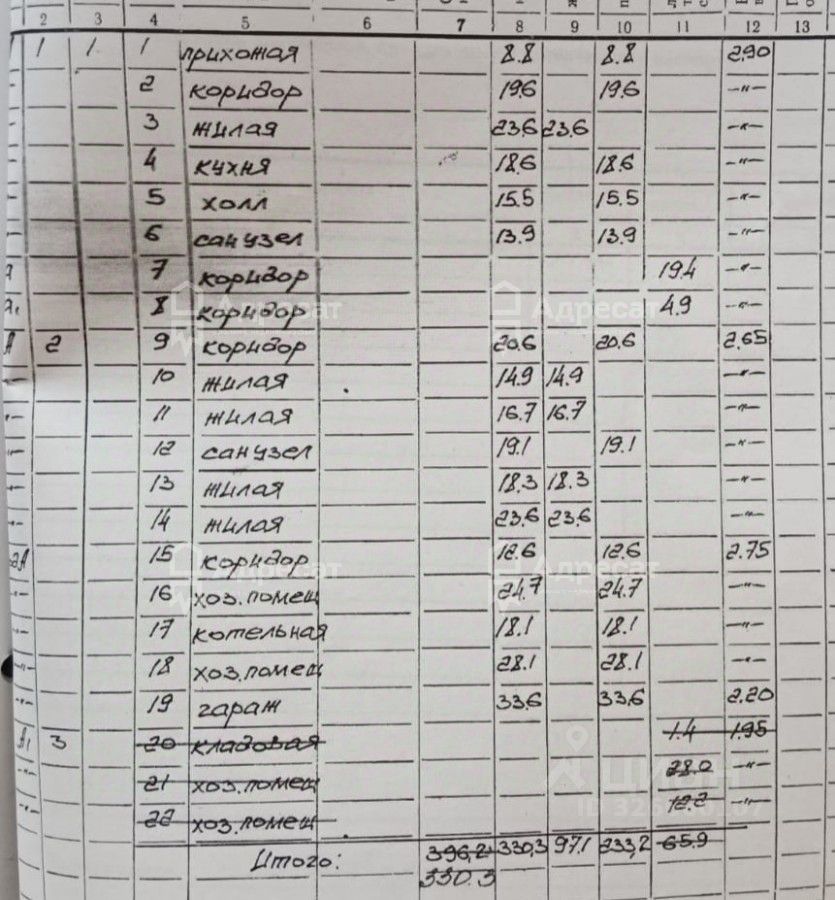 2 3 4 5 6 7 8 9 10 11 12 13
1 1 1 прихожая 8.8 8.8 2.90
2 коридор 19.6 19.6 -"-
3 жилая 23.6 23.6 -"-
4 кухня 18.6 18.6 -"-
5 холл 15.5 15.5 -"-
6 санузел 13.9 13.9 -"-
7 коридор 19.4 -"-
8 коридор 4.9 -"-
А 2 9 коридор 20.6 20.6 2.65
-"- 10 жилая 14.9 14.9 -"-
-"- 11 жилая 16.7 16.7 -"-
-"- 12 санузел 19.1 19.1 -"-
-"- 13 жилая 18.3 18.3 -"-
-"- 14 жилая 23.6 23.6 -"-
2А 15 коридор 12.6 12.6 2.75
-"- 16 хоз.помещ 24.7 24.7 -"-
-"- 17 котельная 18.1 18.1 -"-
-"- 18 хоз.помещ 28.1 28.1 -"-
-"- 19 гараж 33.6 33.6 2.20
А1 3 20 кладовая 1.4 1.95
-"- 21 хоз.помещ 28.0 -"-
-"- 22 хоз.помещ 12.2 -"-
Итого: 396,2 330,3 97.1 233,2 65.9
330.3
Адресат
Адресат
Адресат
Адресат
циан